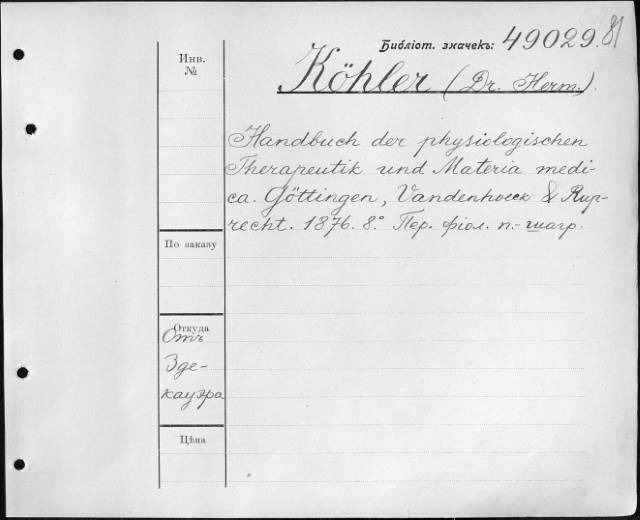 Библіот. значекъ: 49029.81
Инв.
№
Köhler (Dr. Herm.).
Handbuch der physiologischen
Therapeutik und Materia medi-
ca. Göttingen, Vandenhoeck & Rup-
recht. 1876. 8.° Пер. фіол. п.-шагр.
По заказу
Откуда
Отъ
Зде-
кауэра
Цѣна